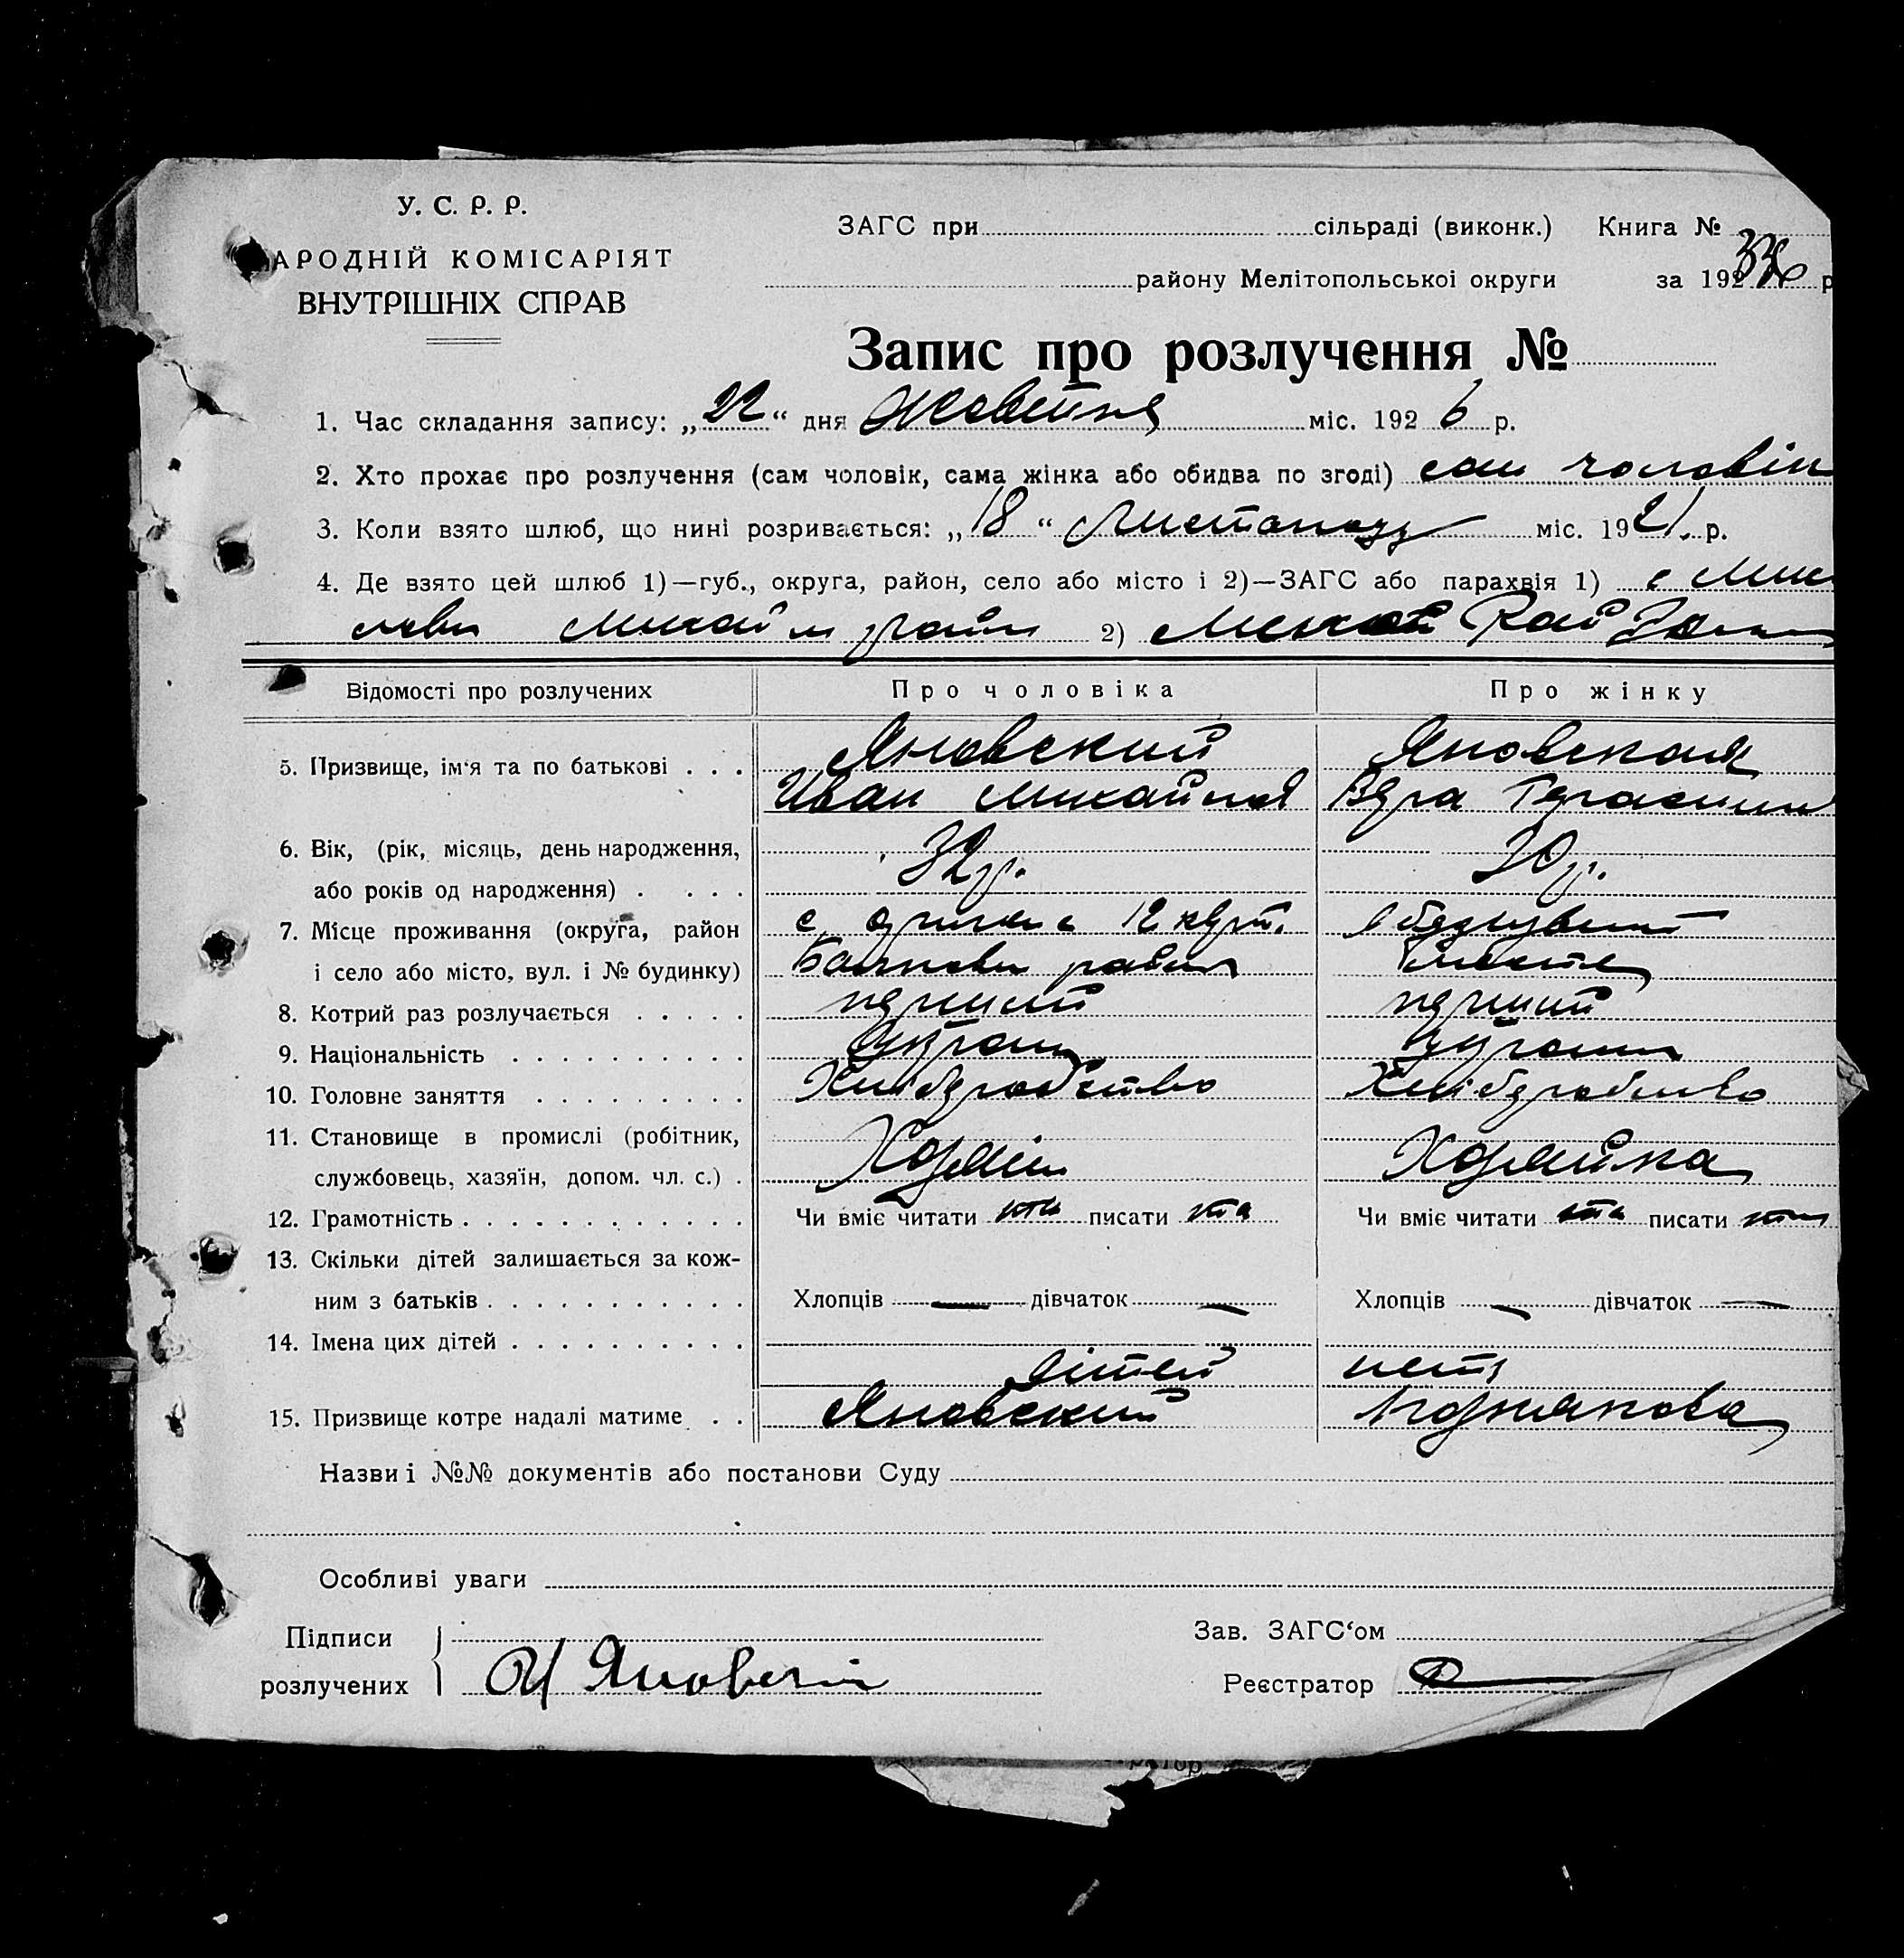 У. С. Р. Р.
АРОДНІЙ КОМІСАРІЯТ
ВНУТРІШНІХ СПРАВ
ЗАГС при сільраді (виконк.) Книга №
району Мелітопольської округи за 192 р
Запис про розлучення №
1. Час складання запису: „22“ дня Жовтня міс. 1926 р.
2. Хто прохає про розлучення (сам чоловік, сама жінка або обидва по згоді) сам чоловік
3. Коли взято шлюб, що нині розривається: „18“ Листопаду міс. 1921. р.
4. Де взято цей шлюб 1)—губ., округа, район, село або місто і 2)—ЗАГС або парахвія 1) с
2)
Відомості про розлучених Про чоловіка Про жінку
5. Призвище, ім‘я та по батькові . . . Яновский Яновская
Иван Михайлов Вера Герасим
6. Вік, (рік, місяць, день народження, 32 р. 30 р.
або років од народження) . . . .
7. Місце проживання (округа, район с 12
і село або місто, вул. і № будинку)
8. Котрий раз розлучається . . . . . перший перший
9. Національність . . . . . . . . . . Украин
10. Головне заняття . . . . . . . . . Хлібєробство Хлібєробство
11. Становище в промислі (робітник,
службовець, хазяїн, допом. чл. с.) . Хозяін Хозяйка
12. Грамотність . . . . . . . . . . . . Чи вміє читати писати Чи вміє читати писати
13. Скільки дітей залишається за кож-
ним з батьків . . . . . . . . . . . Хлопців — дівчаток — Хлопців — дівчаток —
14. Імена цих дітей . . . . . . . . . .
дітей нет
15. Призвище котре надалі матиме . . Яновский
Назви і №№ документів або постанови Суду
Особливі уваги
Підписи Зав. ЗАГС‘ом
розлучених И Яновскій Реєстратор